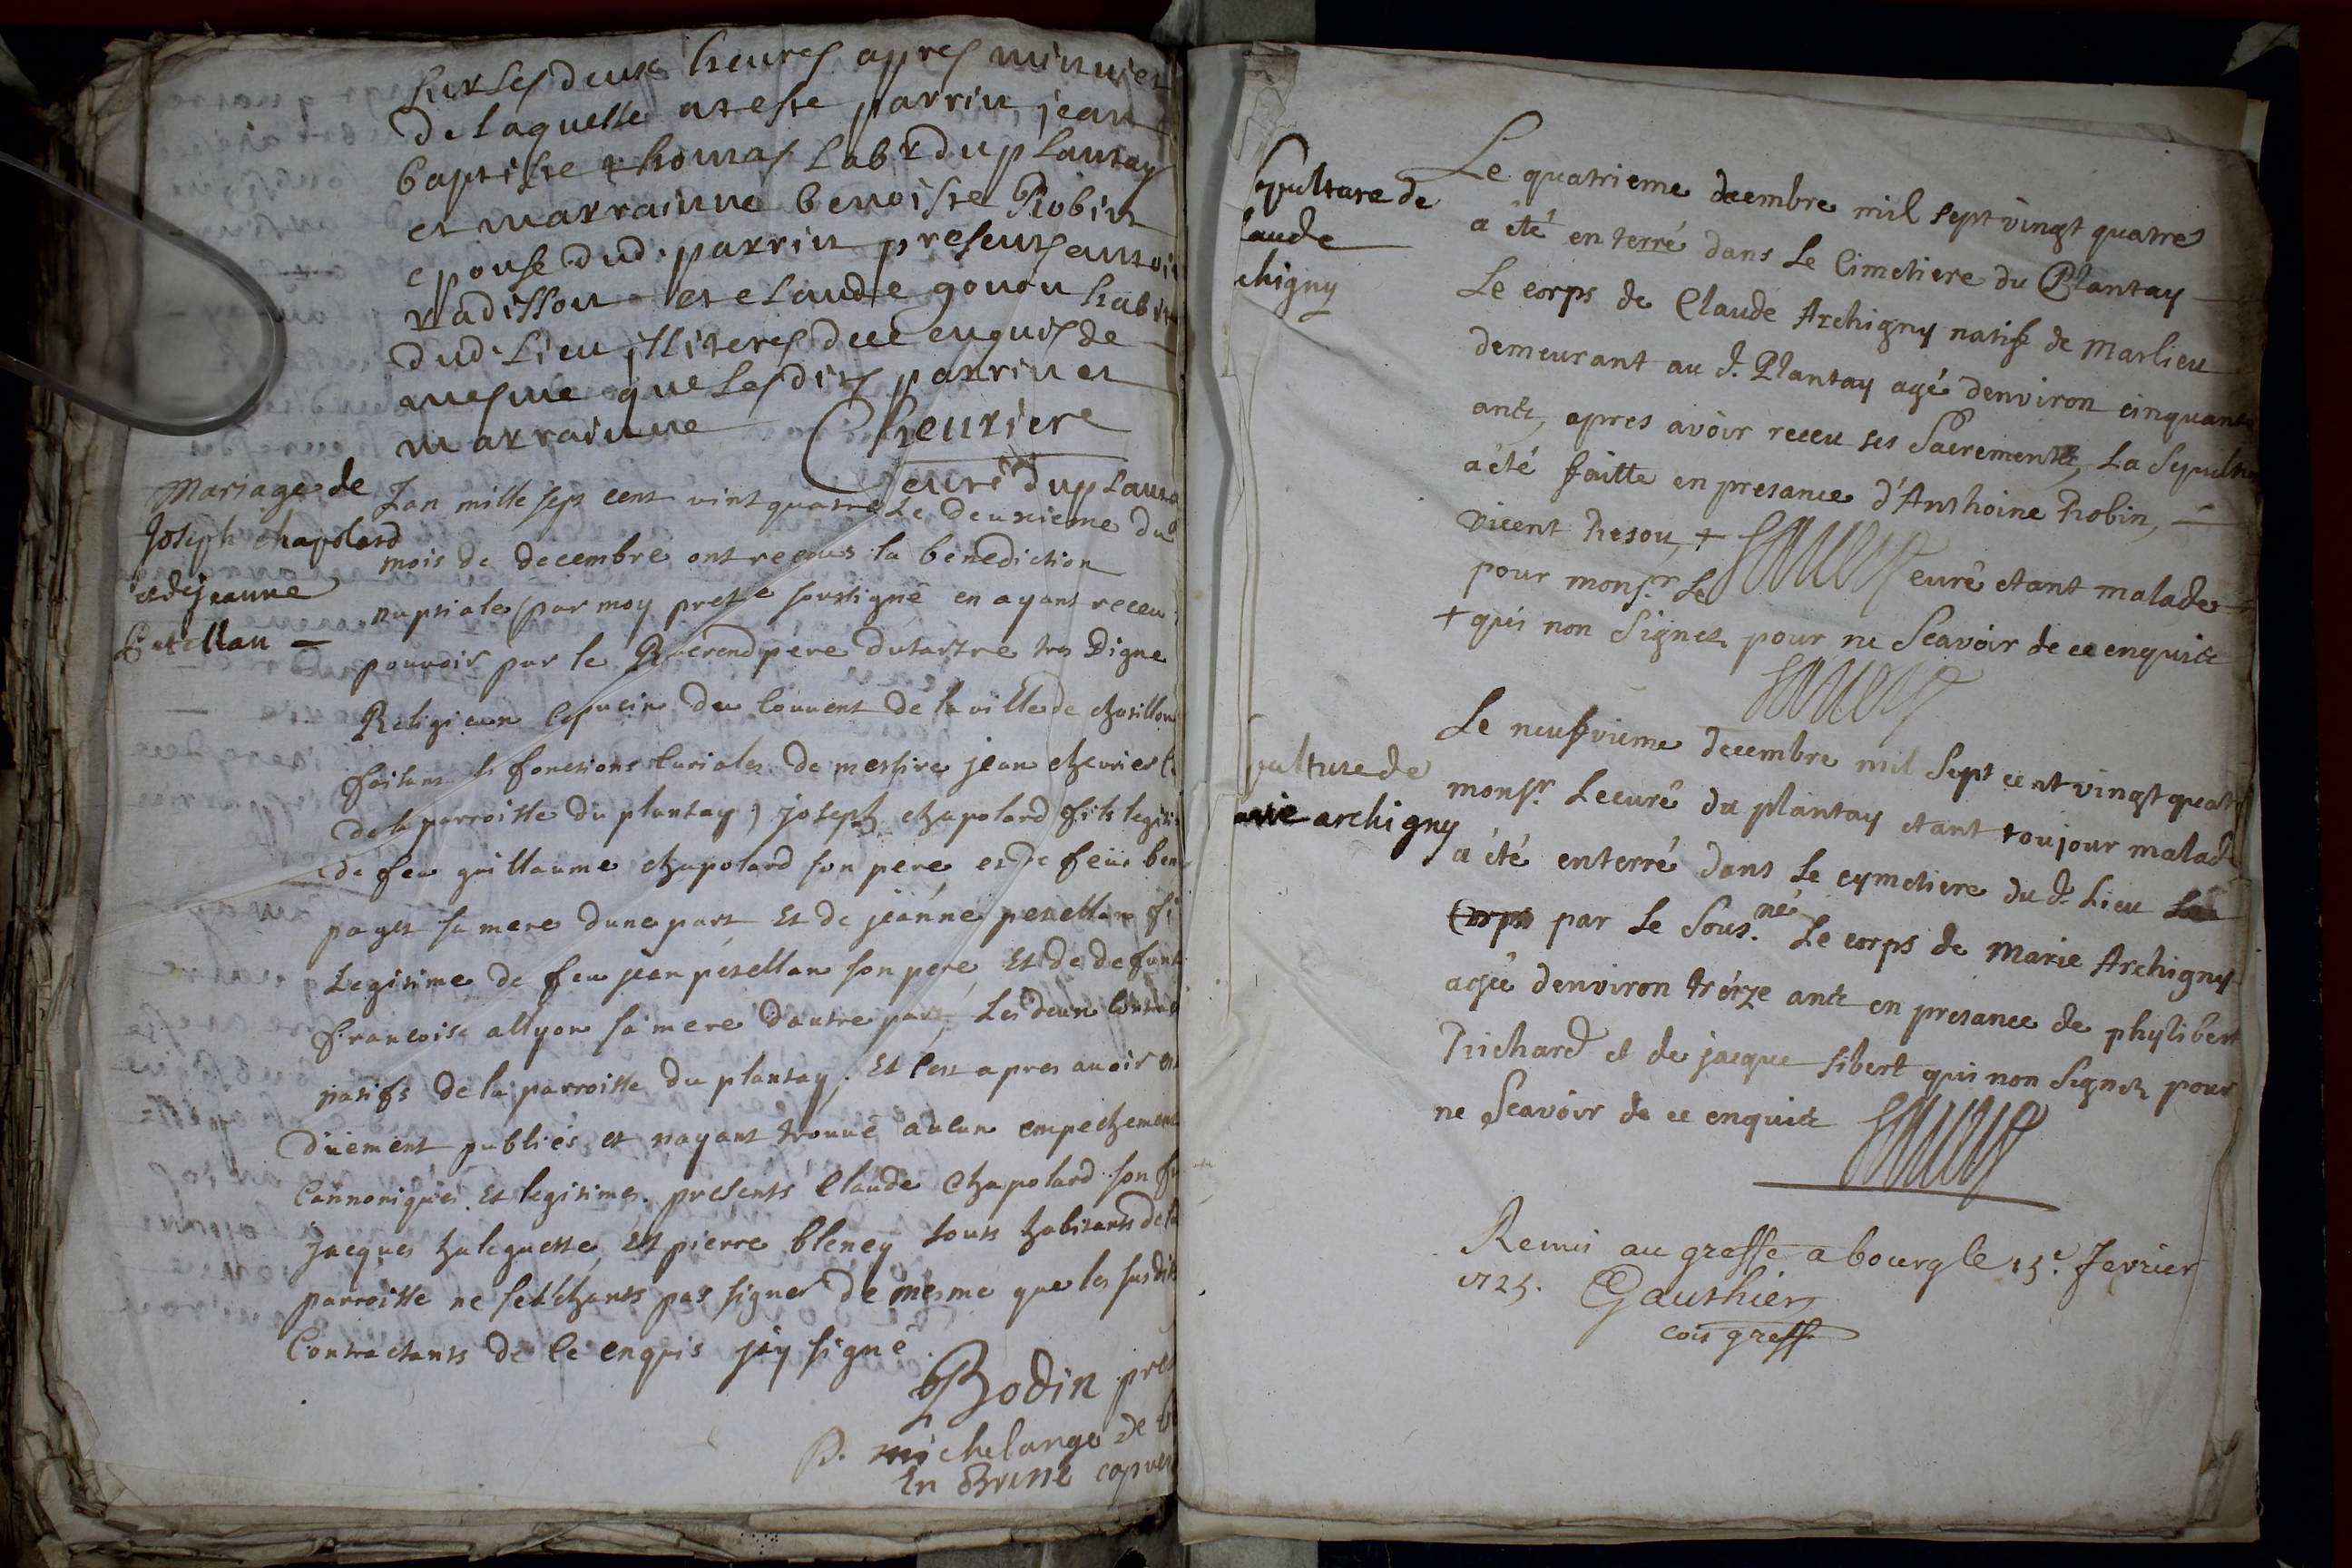 sur les deux heures apres minuict
de laquelle at esté parrin jean
baptiste thomas lab.r du plantay
et marrainne benoiste Robin
epouse dud. parrin presents antoi
radisson et claude gonon habit
dud. lieu illiteres de ce enquis de
mesme que lesdits parrin et
marrainne Cheuriere
curé du planta
Mariage de
Joseph chapolard
et de jeanne
Petellan
Lan mille sept cent vint quatre Le deuxieme du
mois de decembre ont recous la benediction
nuptiale (par moy preste soussigné en ayant receu
pouvoir par le Reverend pere dutartre tres Digne
Religieux Capucin du Couvent de la ville de chatillon
faisant les fonctions Curiales de messire jean chevrier C.
de la parroisse du plantay) joseph chapolard fils legiti
de feu guillaume chapolard son pere et de feüe ben
paget sa mere dune part Et de jeanne petellan fi
Legitime de feu jean petellan son pere Et de defunt
francoise allyon sa mere dautre part, Les deux Contrac
natifs de la parroisse du plantay. Et c'est apres auoir
düement publiés et nayant trouué aucun empechement
Cannoniques Et legitimes. presents Claude Chapolard son f
Jacques haleguette, Et pierre bleney touts habitants de la
parroisse ne setchants pas signer de mesme que les susdits
Contractants de Ce enquis jay signé
Bodin pret
P. michelange de
En Bresse capuci
Sepulture de
laude
chigny
Le quatrieme decembre mil sept vingt quatre
a été enterré dans Le Cimetiere du Plantay
Le corps de Claude Archigny natif de Marlieu
demeurant au d. Plantay agé denviron cinquante
ants, apres avoir receu ses Sacrements, La Sepultur
a été faitte en presance d'Anthoine Robin,
vicent Resou, +
pour mons.r Le curé etant malade
+ qui non Signer pour ne Scavoir de ce enquits
pulture de
arie archigny
Le neufvieme decembre mil Sept cent vingt quatr
mons.r Lecuré du plantay etant toujour malade
a été enterré dans Le cymetiere du d. Lieu Le
Corps par Le Sous.né Le corps de Marie Archigny
agée denviron tréze ants en presance de phylibert
Prichard et de jacque Sibert qui non Signer pour
ne Scavoir de ce enquits
Remis au greffe a bourg le 15.e fevrier
1725. Gauthier
cois greff.